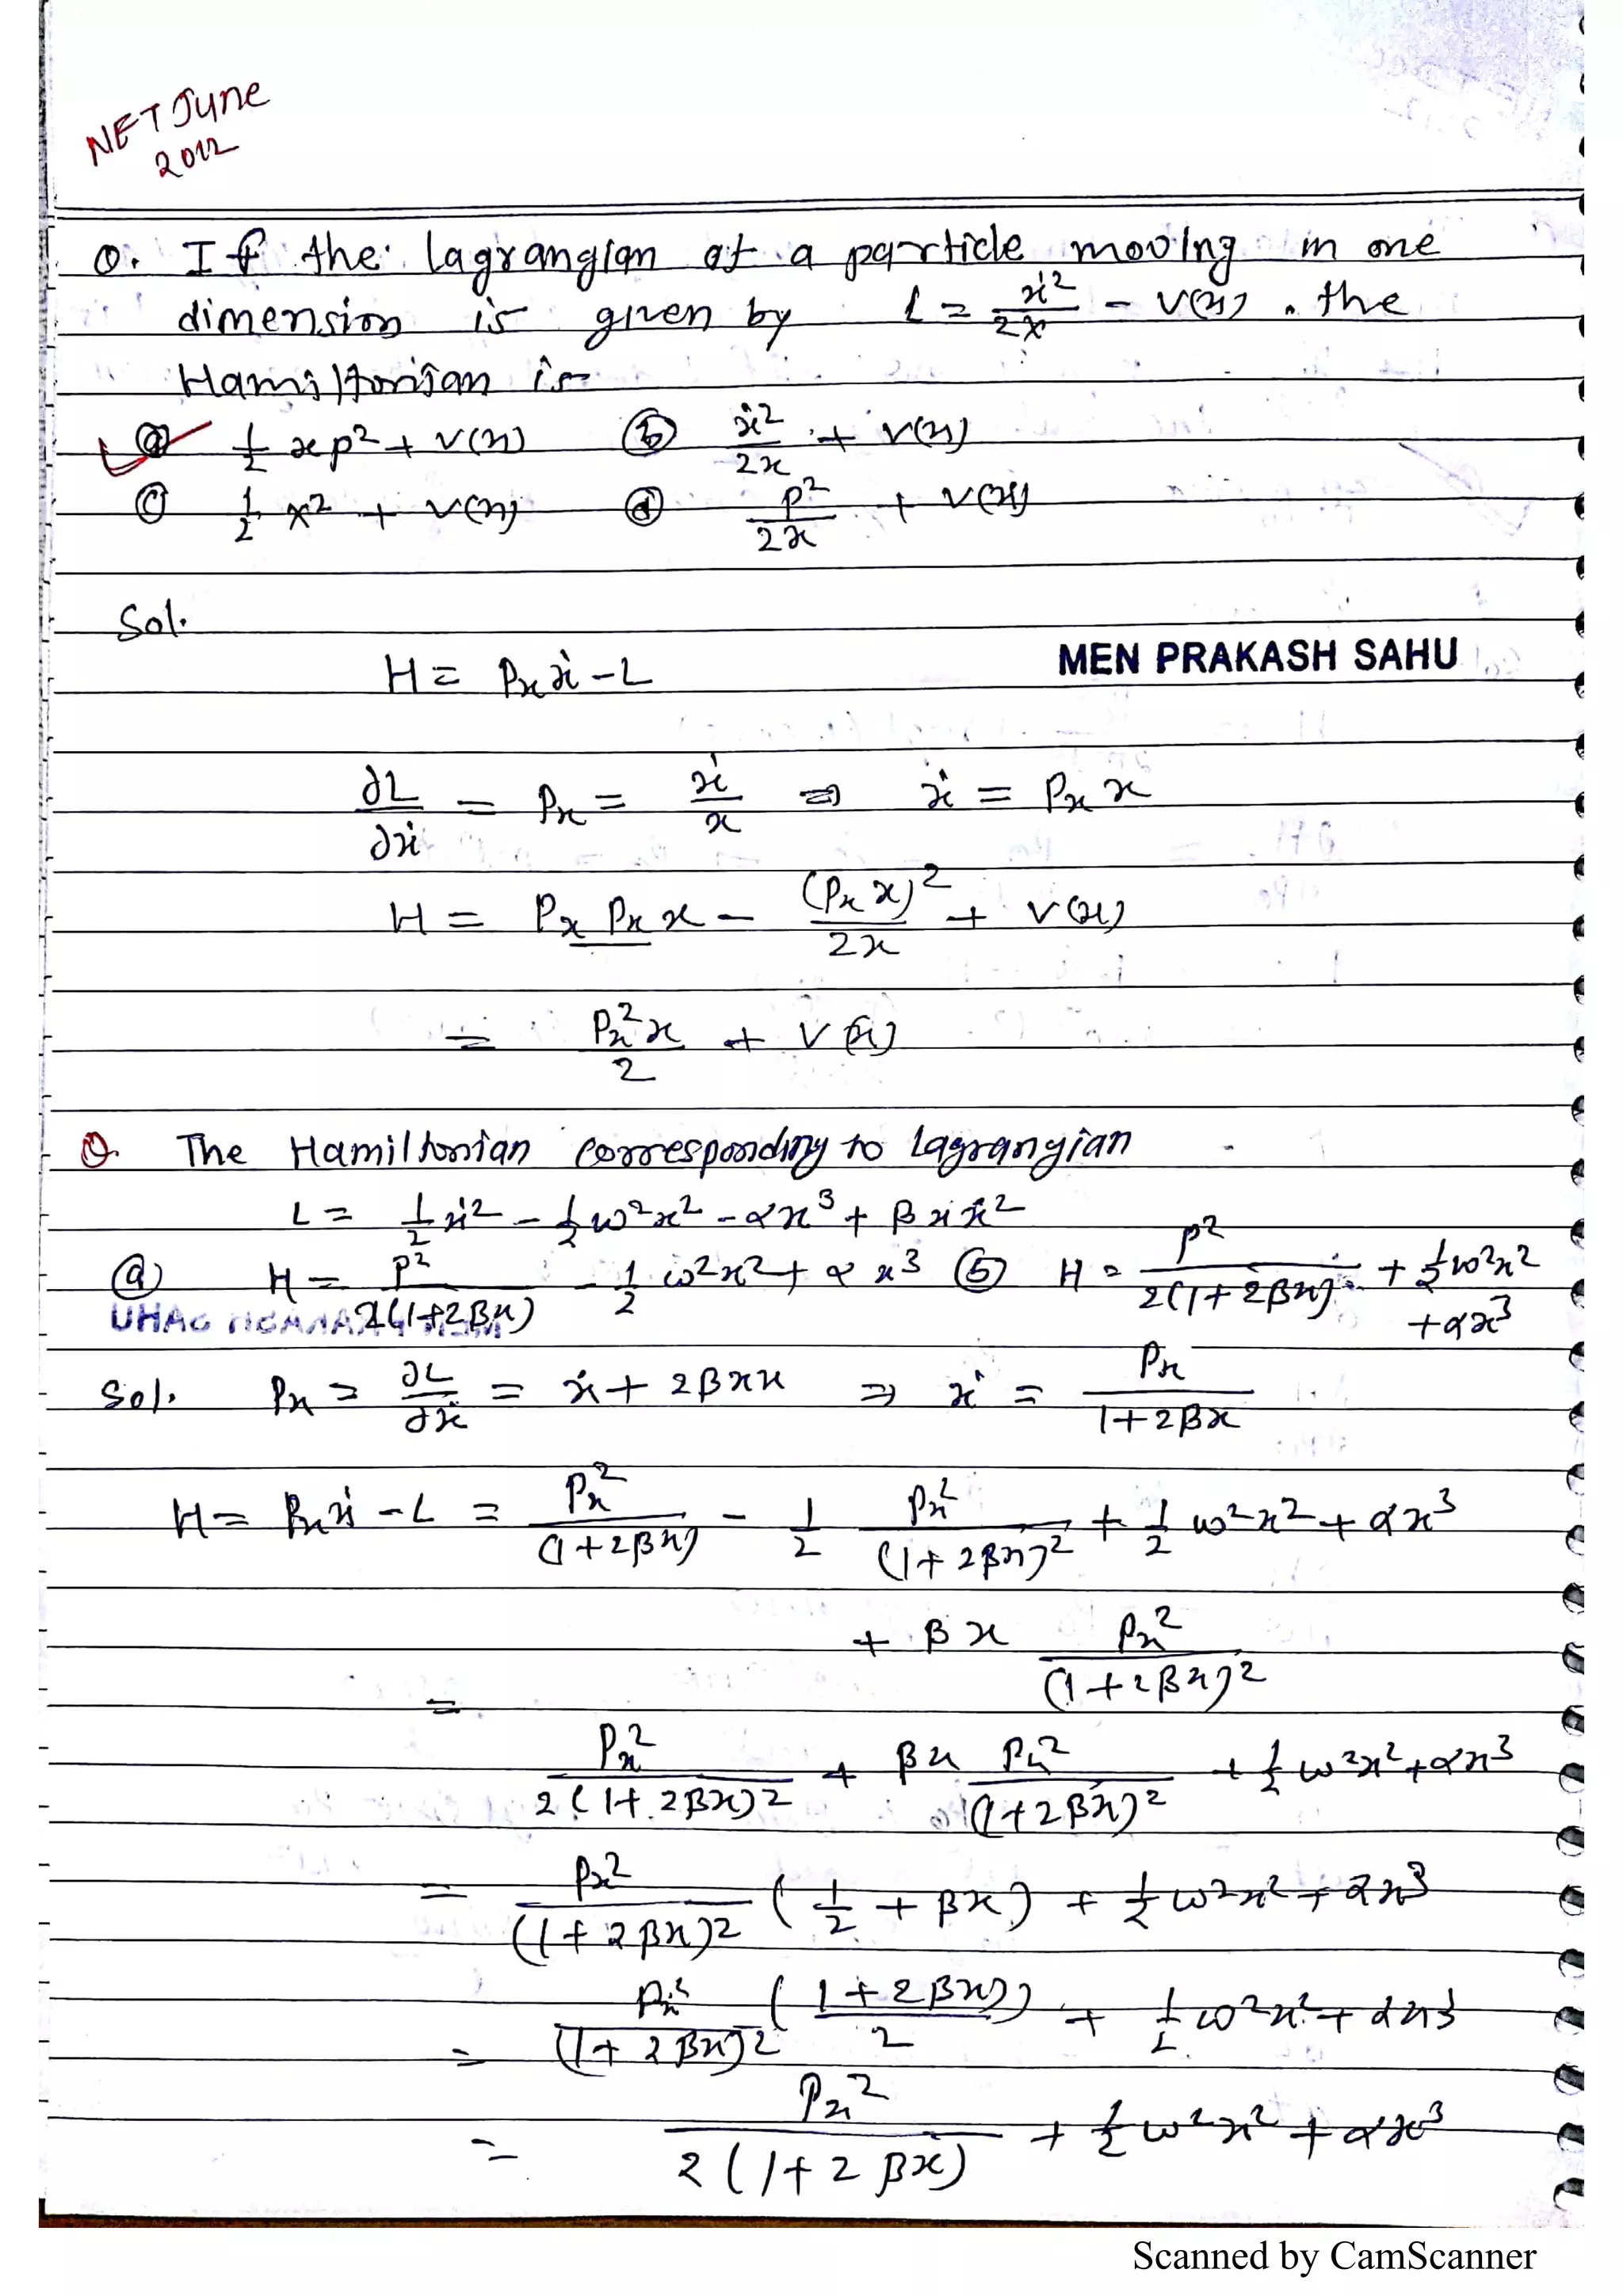 NET June
2012
Q. If the lagrangian of a particle moving in one
dimension is given by L = ẋ²/2x - V(x). the
Hamiltonian is
(a) 1/2 xp² + V(x) (b) ẋ²/2x + V(x)
(c) 1/2 x² + V(x) (d) p²/2x + V(x)
Sol.
MEN PRAKASH SAHU
H = Pₓẋ - L
∂L/∂ẋ = Pₓ = ẋ/x ⇒ ẋ = Pₓ x
H = Pₓ Pₓ x - (Pₓ x)²/2x + V(x)
= Pₓ² x/2 + V(x)
Q. The Hamiltonian corresponding to Lagrangian
L = 1/2 ẋ² - 1/2 ω²x² - αx³ + βxẋ²
(a) H = P²/2(1+2βx) - 1/2 ω²x² + αx³ (b) H = P²/2(1+2βx) + 1/2 ω²x² + αx³
Sol. Pₓ = ∂L/∂ẋ = ẋ + 2βxẋ ⇒ ẋ = Pₓ/1+2βx
H = Pₓẋ - L = Pₓ²/(1+2βx) - 1/2 Pₓ²/(1+2βx)² + 1/2 ω²x² + αx³
+ βx Pₓ²/(1+2βx)²
= Pₓ²/2(1+2βx)² + βx Pₓ²/(1+2βx)² + 1/2 ω²x² + αx³
= Pₓ²/(1+2βx)² (1/2 + βx) + 1/2 ω²x² + αx³
= Pₓ²/(1+2βx)² ((1+2βx)/2) + 1/2 ω²x² + αx³
= Pₓ²/2(1+2βx) + 1/2 ω²x² + αx³
Scanned by CamScanner